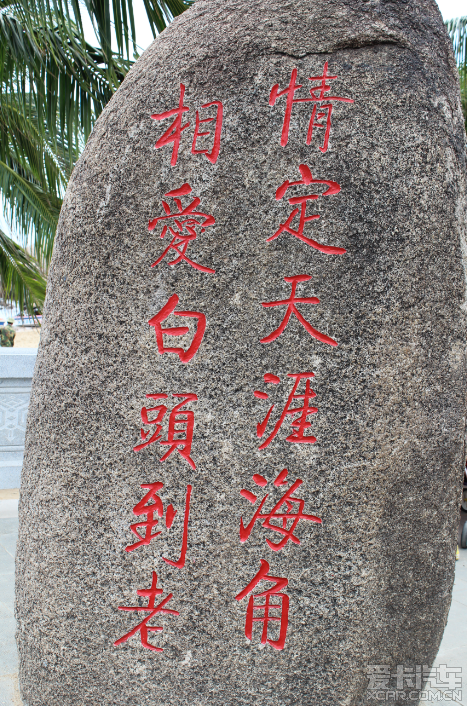 情定天涯海角
相愛白頭到老
爱卡汽车
XCAR.COM.CN